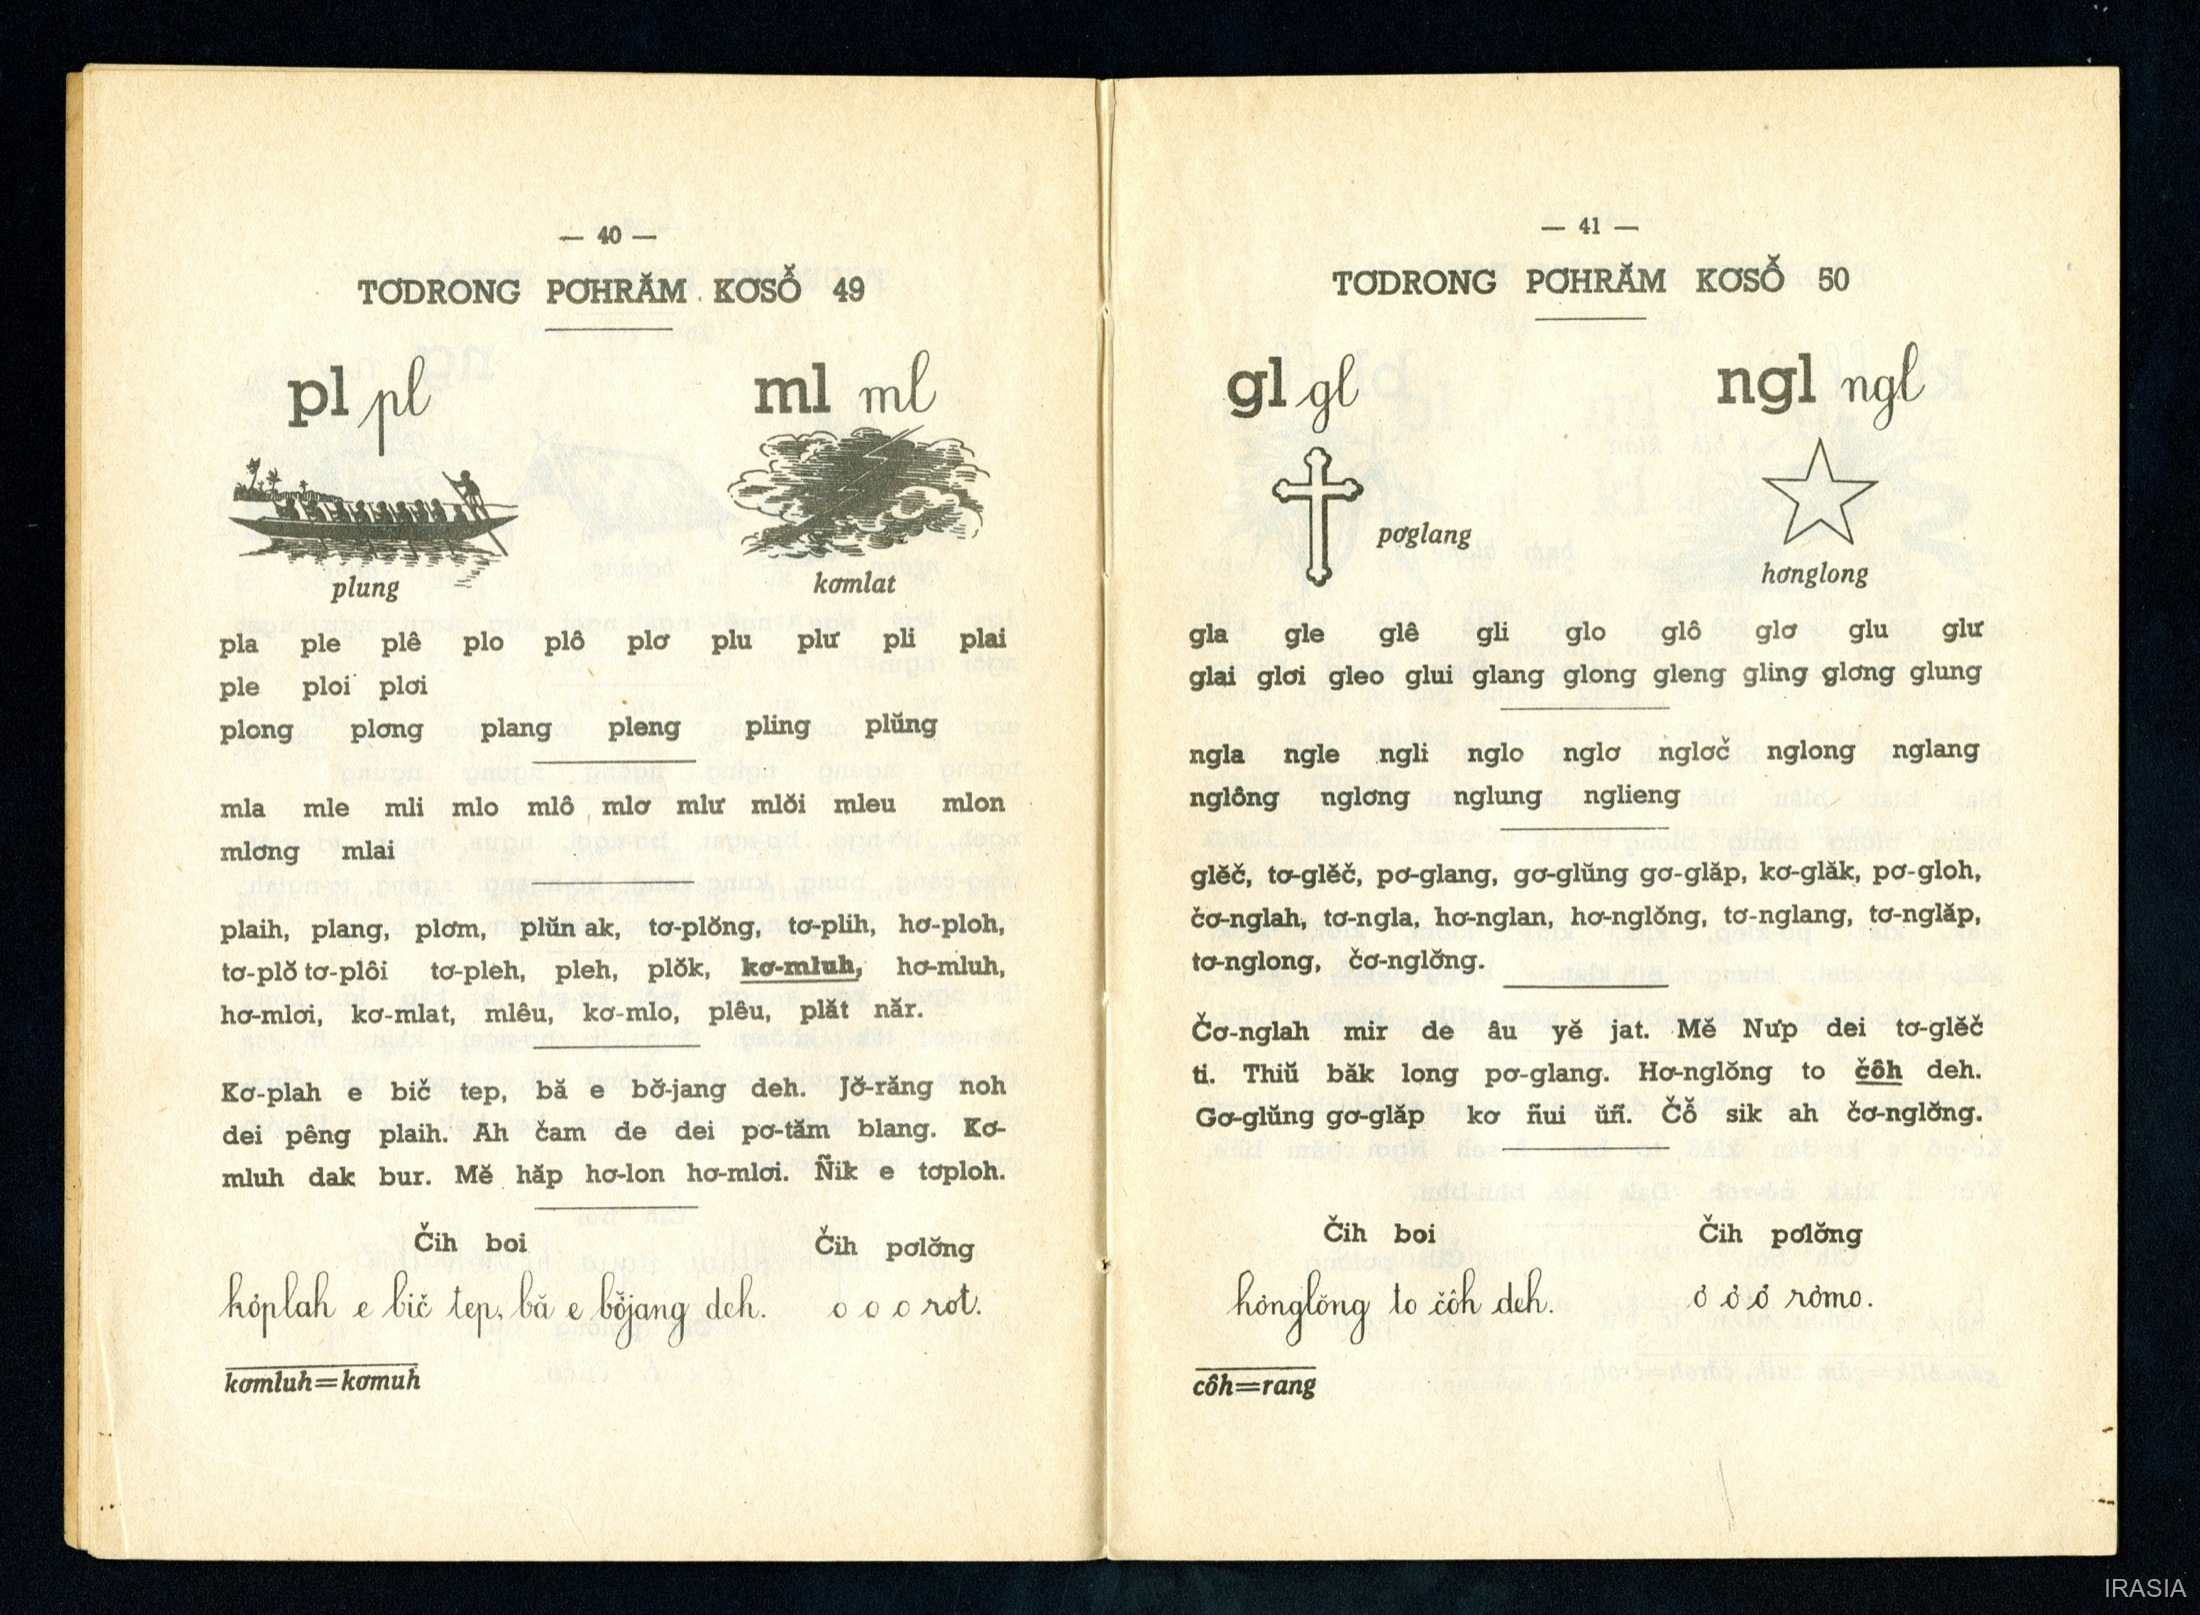 — 40 —
TƠDRONG PƠHRĂM KƠSỐ̆ 49
pl pl
ml ml
plung
kơmlat
pla ple plê plo plô plơ plu plư pli plai
ple ploi plơi
plong plơng plang pleng pling plŭng
mla mle mli mlo mlô mlơ mlư mlŏi mleu mlon
mlơng mlai
plaih, plang, plơm, plŭn ak, tơ-plŏng, tơ-plih, hơ-ploh,
tơ-plŏ tơ-plôi tơ-pleh, pleh, plŏk, kơ-mluh, hơ-mluh,
hơ-mlơi, kơ-mlat, mlêu, kơ-mlo, plêu, plăt năr.
Kơ-plah e bič tep, bă e bơ̆-jang deh. Jơ̆-răng noh
dei pêng plaih. Ah čam de dei pơ-tăm blang. Kơ-
mluh dak bur. Mĕ hăp hơ-lon hơ-mlơi. Ñik e tơploh.
Čih boi
Čih pơlơ̆ng
kơplah e bič tep, bă e bơ̆jang deh.
o o o rot.
kơmluh=kơmuh
— 41 —
TƠDRONG PƠHRĂM KƠSỐ̆ 50
gl gl
ngl ngl
pơglang
hơnglong
gla gle glê gli glo glô glơ glu glư
glai glơi gleo glui glang glong gleng gling glơng glung
ngla ngle ngli nglo nglơ nglơč nglong nglang
nglông nglơng nglung nglieng
glĕč, tơ-glĕč, pơ-glang, gơ-glŭng gơ-glăp, kơ-glăk, pơ-gloh,
čơ-nglah, tơ-ngla, hơ-nglan, hơ-nglŏng, tơ-nglang, tơ-nglăp,
tơ-nglong, čơ-nglơ̆ng.
Čơ-nglah mir de âu yĕ jat. Mĕ Nưp dei tơ-glĕč
ti. Thiŭ băk long pơ-glang. Hơ-nglŏng to čôh deh.
Gơ-glŭng gơ-glăp kơ ñui ŭñ. Čô̆ sik ah čơ-nglơ̆ng.
Čih boi
Čih pơlơ̆ng
hơnglŏng to čôh deh.
ơ ơ ơ rơmo.
côh=rang
IRASIA